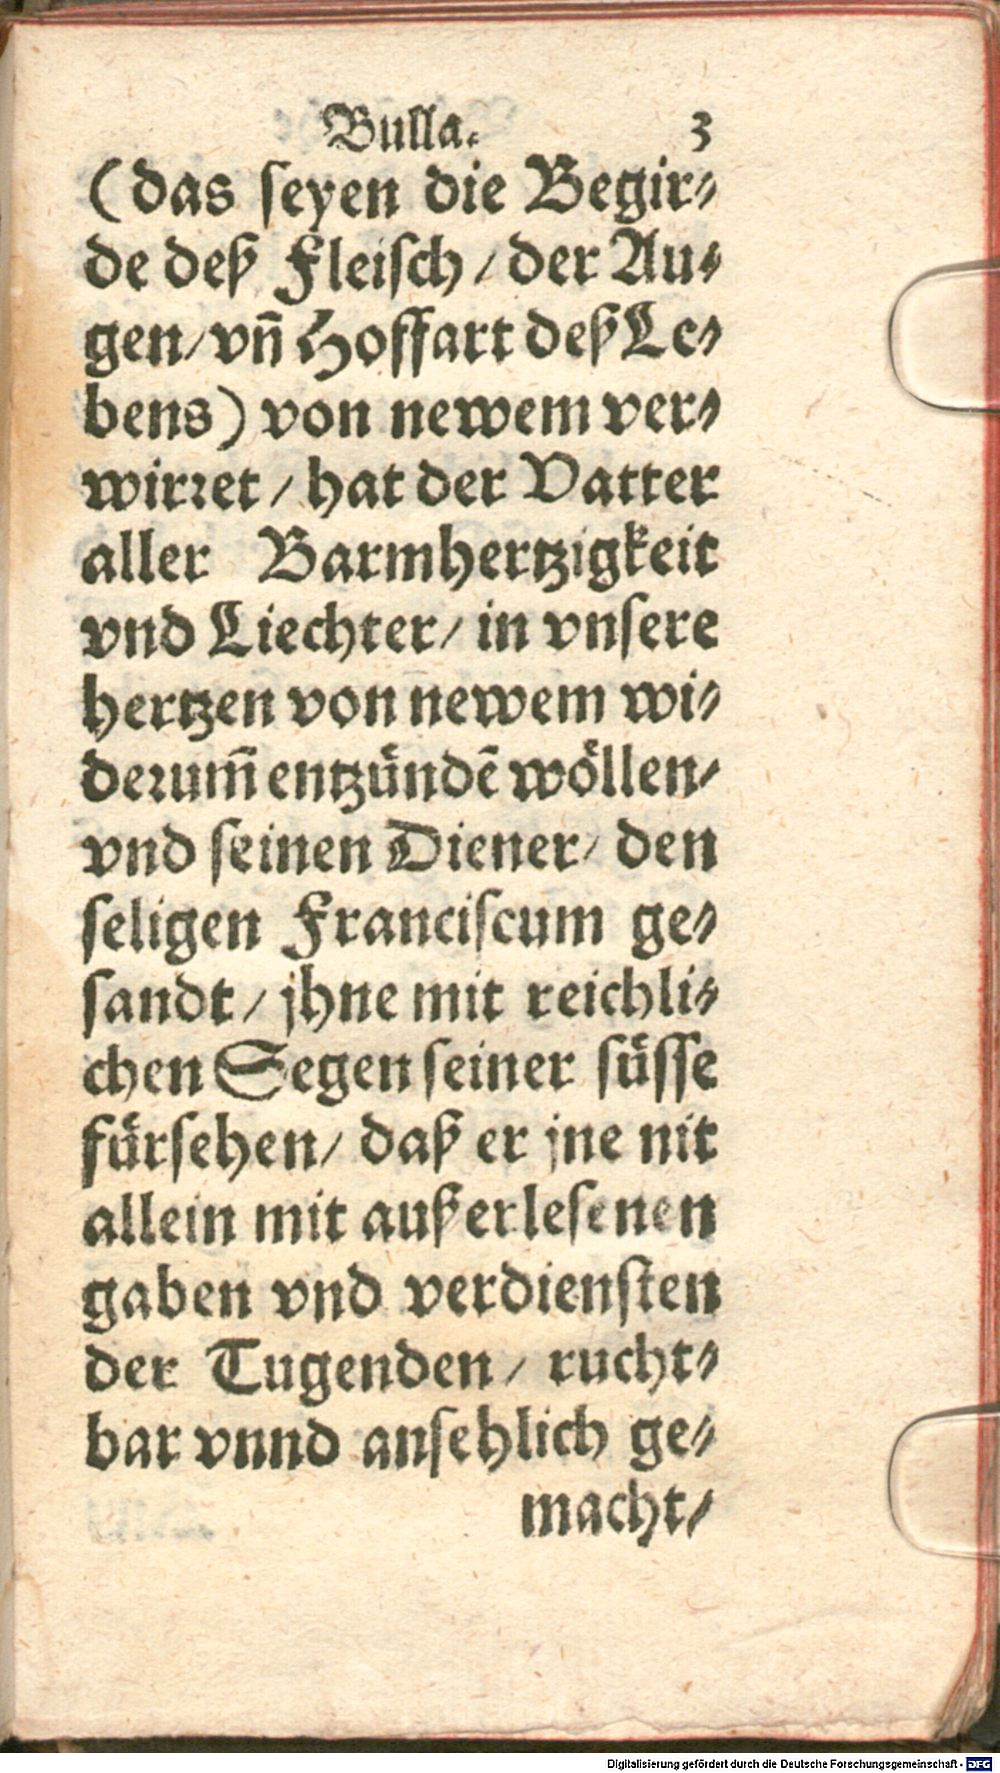 Bulla. 3
(das ſeyen die Begir⸗
de deß Fleiſch / der Au⸗
gen / vn̄ Hoffart deß Le⸗
bens) von newem ver⸗
wirꝛet / hat der Vatter
aller Barmhertzigkeit
vnd Liechter / in vnſere
hertzen von newem wi⸗
deꝛum̄ entzündē wöllen /
vnd ſeinen Diener / den
ſeligen Franciſcum ge⸗
ſandt / jhne mit reichli⸗
chen Segen ſeiner ſüſſe
fürſehen / daß er jne nit
allein mit außerleſenen
gaben vnd verdienſten
der Tugenden / rucht⸗
bar vnnd anſehlich ge⸗
macht /
Digitalisierung gefördert durch die Deutsche Forschungsgemeinschaft - DFG